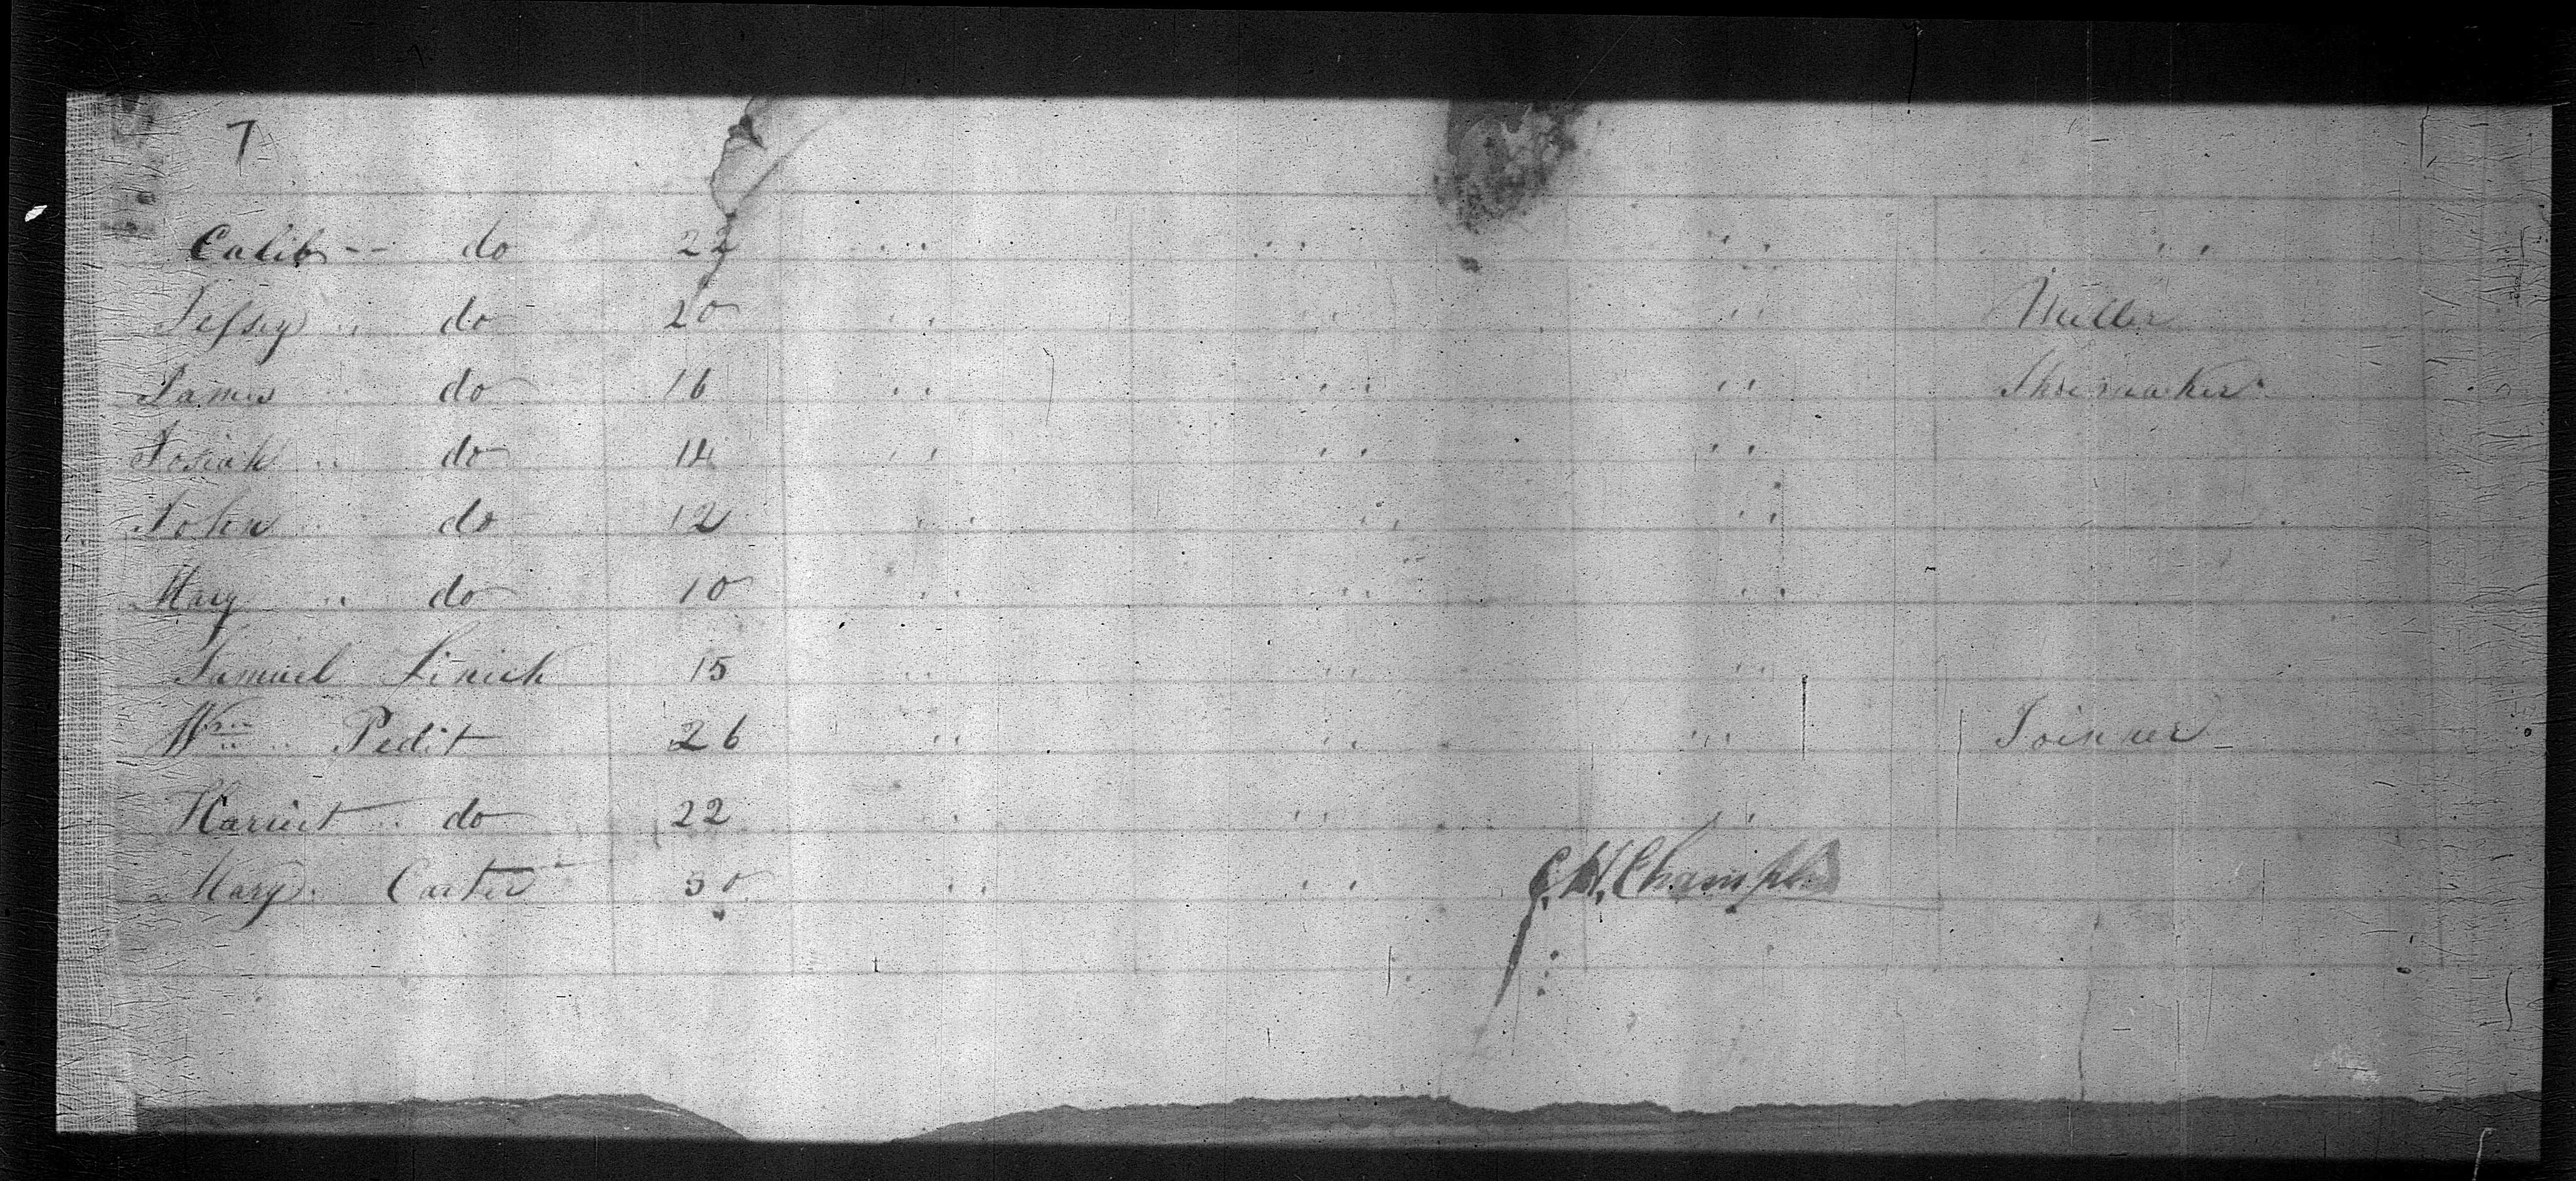 7
Calib -- do 22 " " " "
Jessey " do 20 " " " Miller
James " do 16 " " " Shoemaker
Josiah " do 14 " " "
John " do 12 " " "
Mary " do 10 " " "
Samuel Finich 15 " " "
Wm " Pedit 26 " " " Joinner
Harriet " do 22 " " "
Mary Carter 50 " " G. W. Champlin